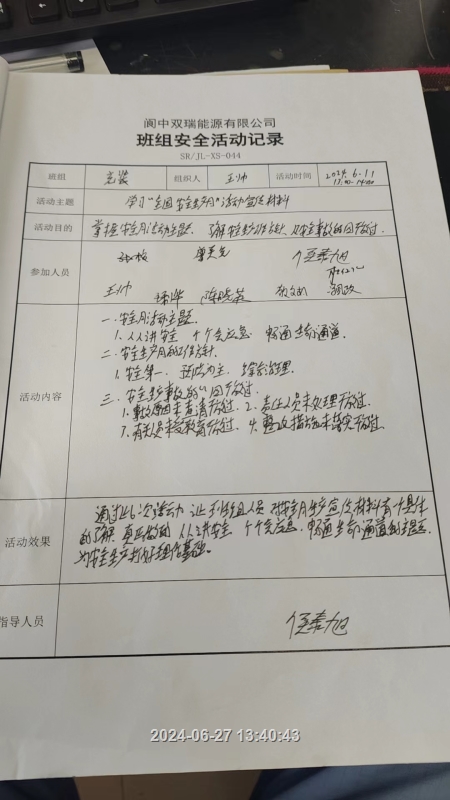 阆中双瑞能源有限公司
班组安全活动记录
SR/JL-XS-044
班组 充装 组织人 王帅 活动时间 2024.6.11
活动主题 学习“全国安全生产月”活动宣传材料
活动目的 掌握安全月活动主题、了解安全生产工作方针、及安全事故的四不放过。
参加人员
王帅
活动内容
一、安全月活动主题。
1、人人讲安全 个个会应急 畅通生命通道。
二、安全生产月的工作方针。
1、安全第一、预防为主、综合治理。
三、安全生产事故的“四不放过”。
1、事故原因未查清不放过、2、责任人员未处理不放过
3、有关人员未受教育不放过、4、整改措施未落实不放过。
活动效果
通过此次活动 让班组人员 对安全月生产宣传材料有个具体
的了解 真正做到 人人讲安全 个个会应急 畅通生命通道的主题,
为安全生产打好理论基础。
指导人员
2024-06-27 13:40:43